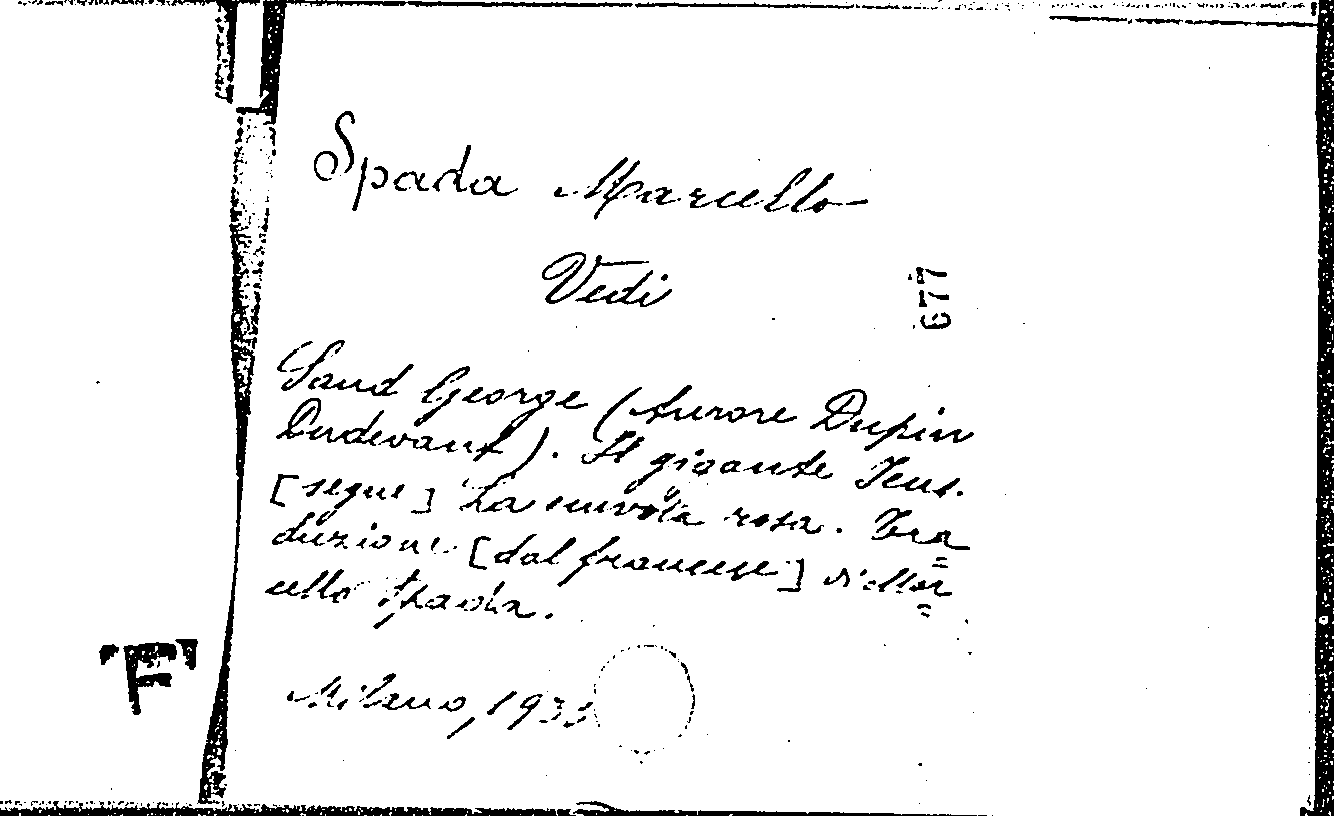 Spada Marcello
Vedi
677
Sand George (Aurore Dupin
Dudevant). Il gigante Jeus.
[segue] La nuvola rosa. Tra=
duzione [dal francese] di Mar=
cello Spada.
Milano, 193
F